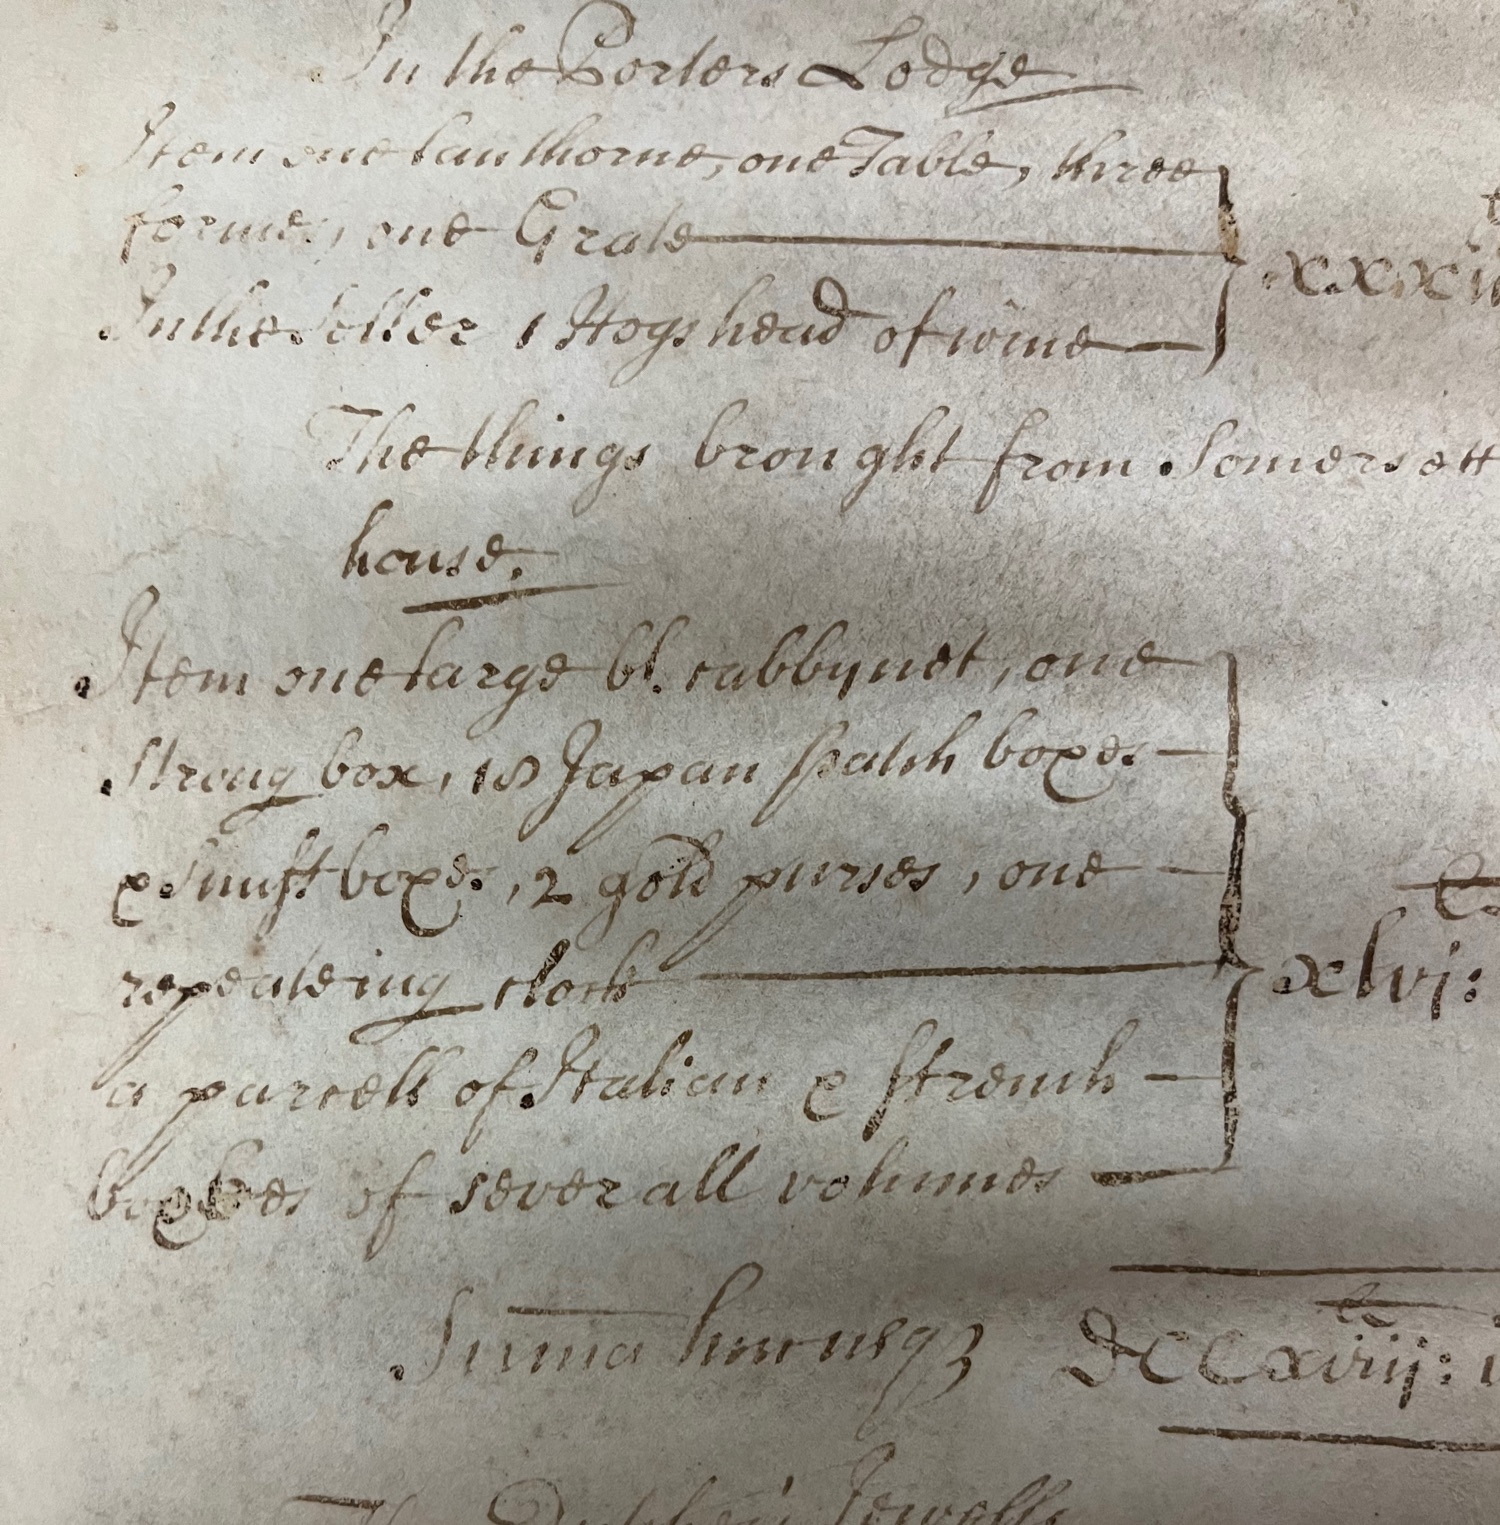 In the Porters Lodge
Item one lanthorne, one Table, three
formes, one Grate
In the Seller 1 Hogshead of wine
xxxii
The things brought from Somersett
house.
Item one large bl. cabbynet, one
strong box, 18 Japan patch boxes
& Snuff boxes, 2 gold purses, one
repeateing clock
xlvj:
a parcell of Italian & ffrench
bookes of severall volumes
Summa hucusq3 DCCxviij:
The Jewells